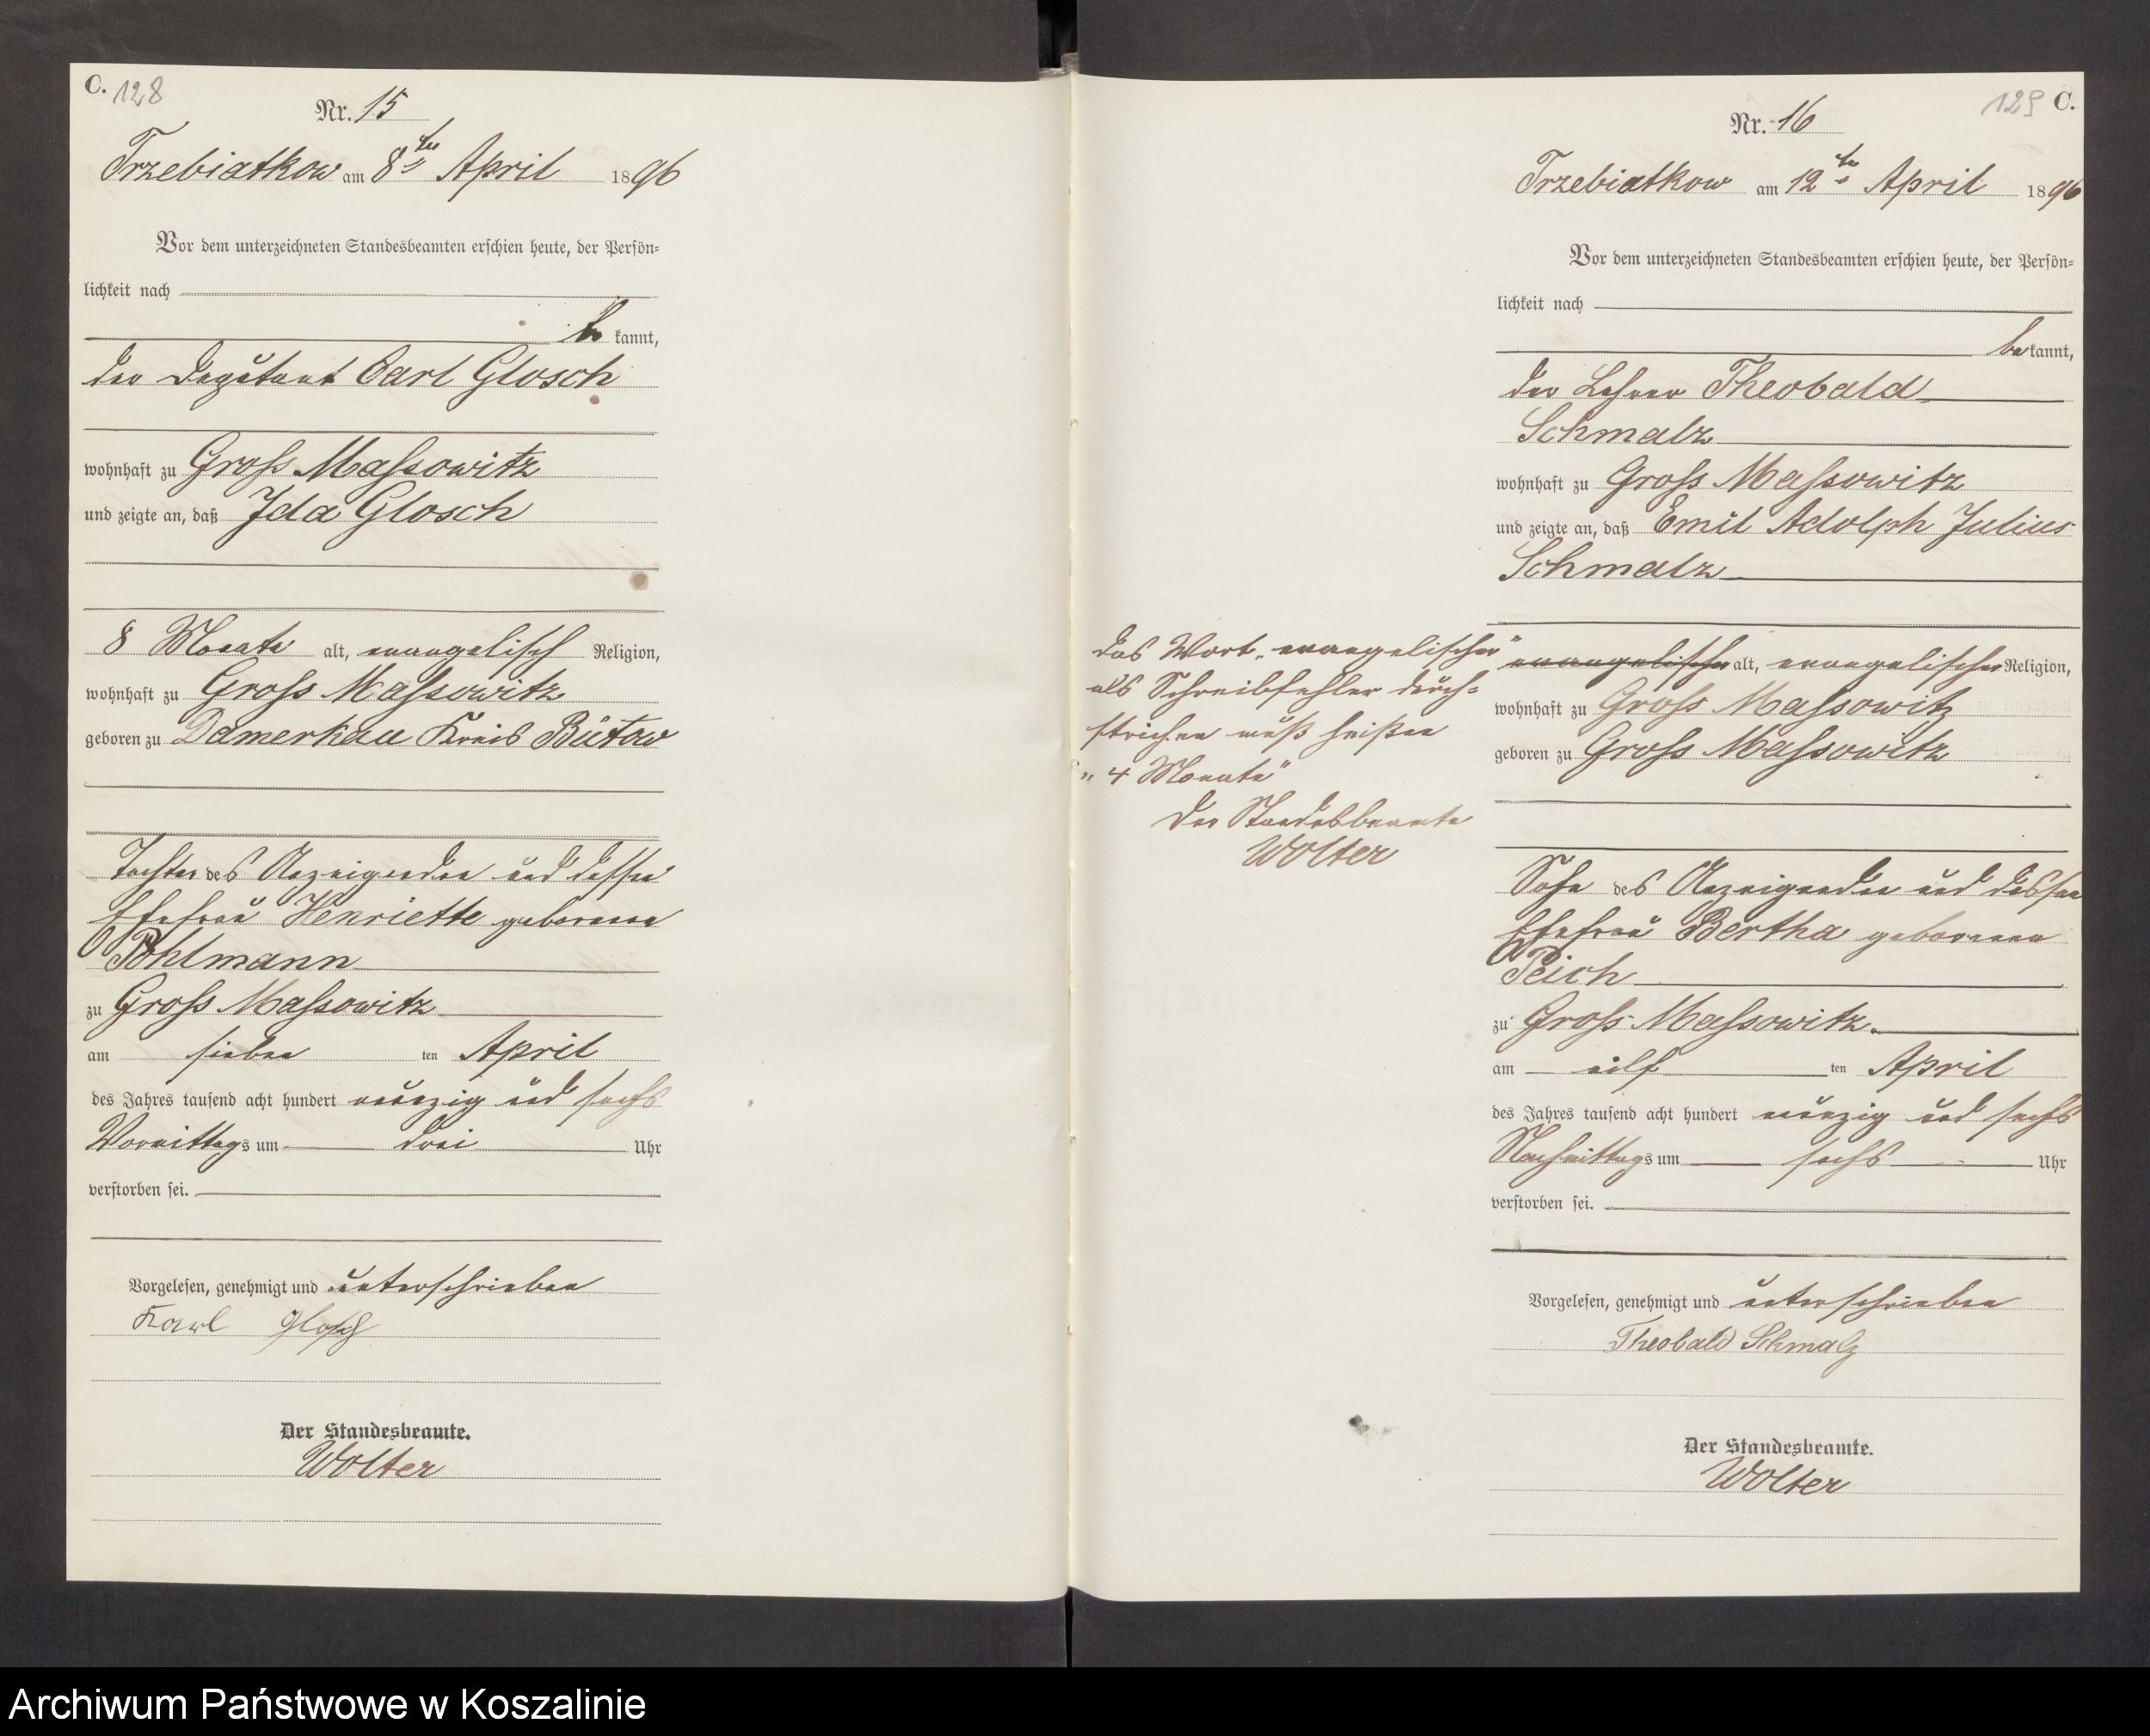 C. 128
Nr. 15
Trzebiatkow am 8ten April 1896
Vor dem unterzeichneten Standesbeamten erschien heute, der Persön-
lichkeit nach
be kannt,
der Deputant Carl Glosch
wohnhaft zu Gross Massowitz
und zeigte an, daß Ida Glosch
8 Monate alt, evangelisch Religion,
wohnhaft zu Gross Massowitz
geboren zu Damerkau Kreis Bütow
Tochter des Anzeigenden und dessen
Ehefrau Henriette geborenen
Pohlmann
zu Gross Massowitz
am sieben ten April
des Jahres tausend acht hundert neunzig und sechs
Vormittags um drei Uhr
verstorben sei.
Vorgelesen, genehmigt und unterschrieben
Karl Glosch
Der Standesbeamte.
Wolter
129 C.
Nr. 16
Trzebiatkow am 12ten April 1896
Vor dem unterzeichneten Standesbeamten erschien heute, der Persön-
lichkeit nach
be kannt,
der Lehrer Theobald
Schmalz
wohnhaft zu Gross Massowitz
und zeigte an, daß Emil Adolph Julius
Schmalz
evangelischer alt, evangelischer Religion,
wohnhaft zu Gross Massowitz
geboren zu Gross Massowitz
das Wort „evangelischer"
als Schreibfehler durch=
strichen muß heißen
„4 Monate"
Der Standesbeamte
Wolter
Sohn des Anzeigenden und dessen
Ehefrau Bertha geborenen
Peich
zu Gross Massowitz.
am eilf ten April
des Jahres tausend acht hundert neunzig und sechs
Nachmittags um sechs Uhr
verstorben sei.
Vorgelesen, genehmigt und unterschrieben
Theobald Schmalz
Der Standesbeamte.
Wolter
Archiwum Państwowe w Koszalinie